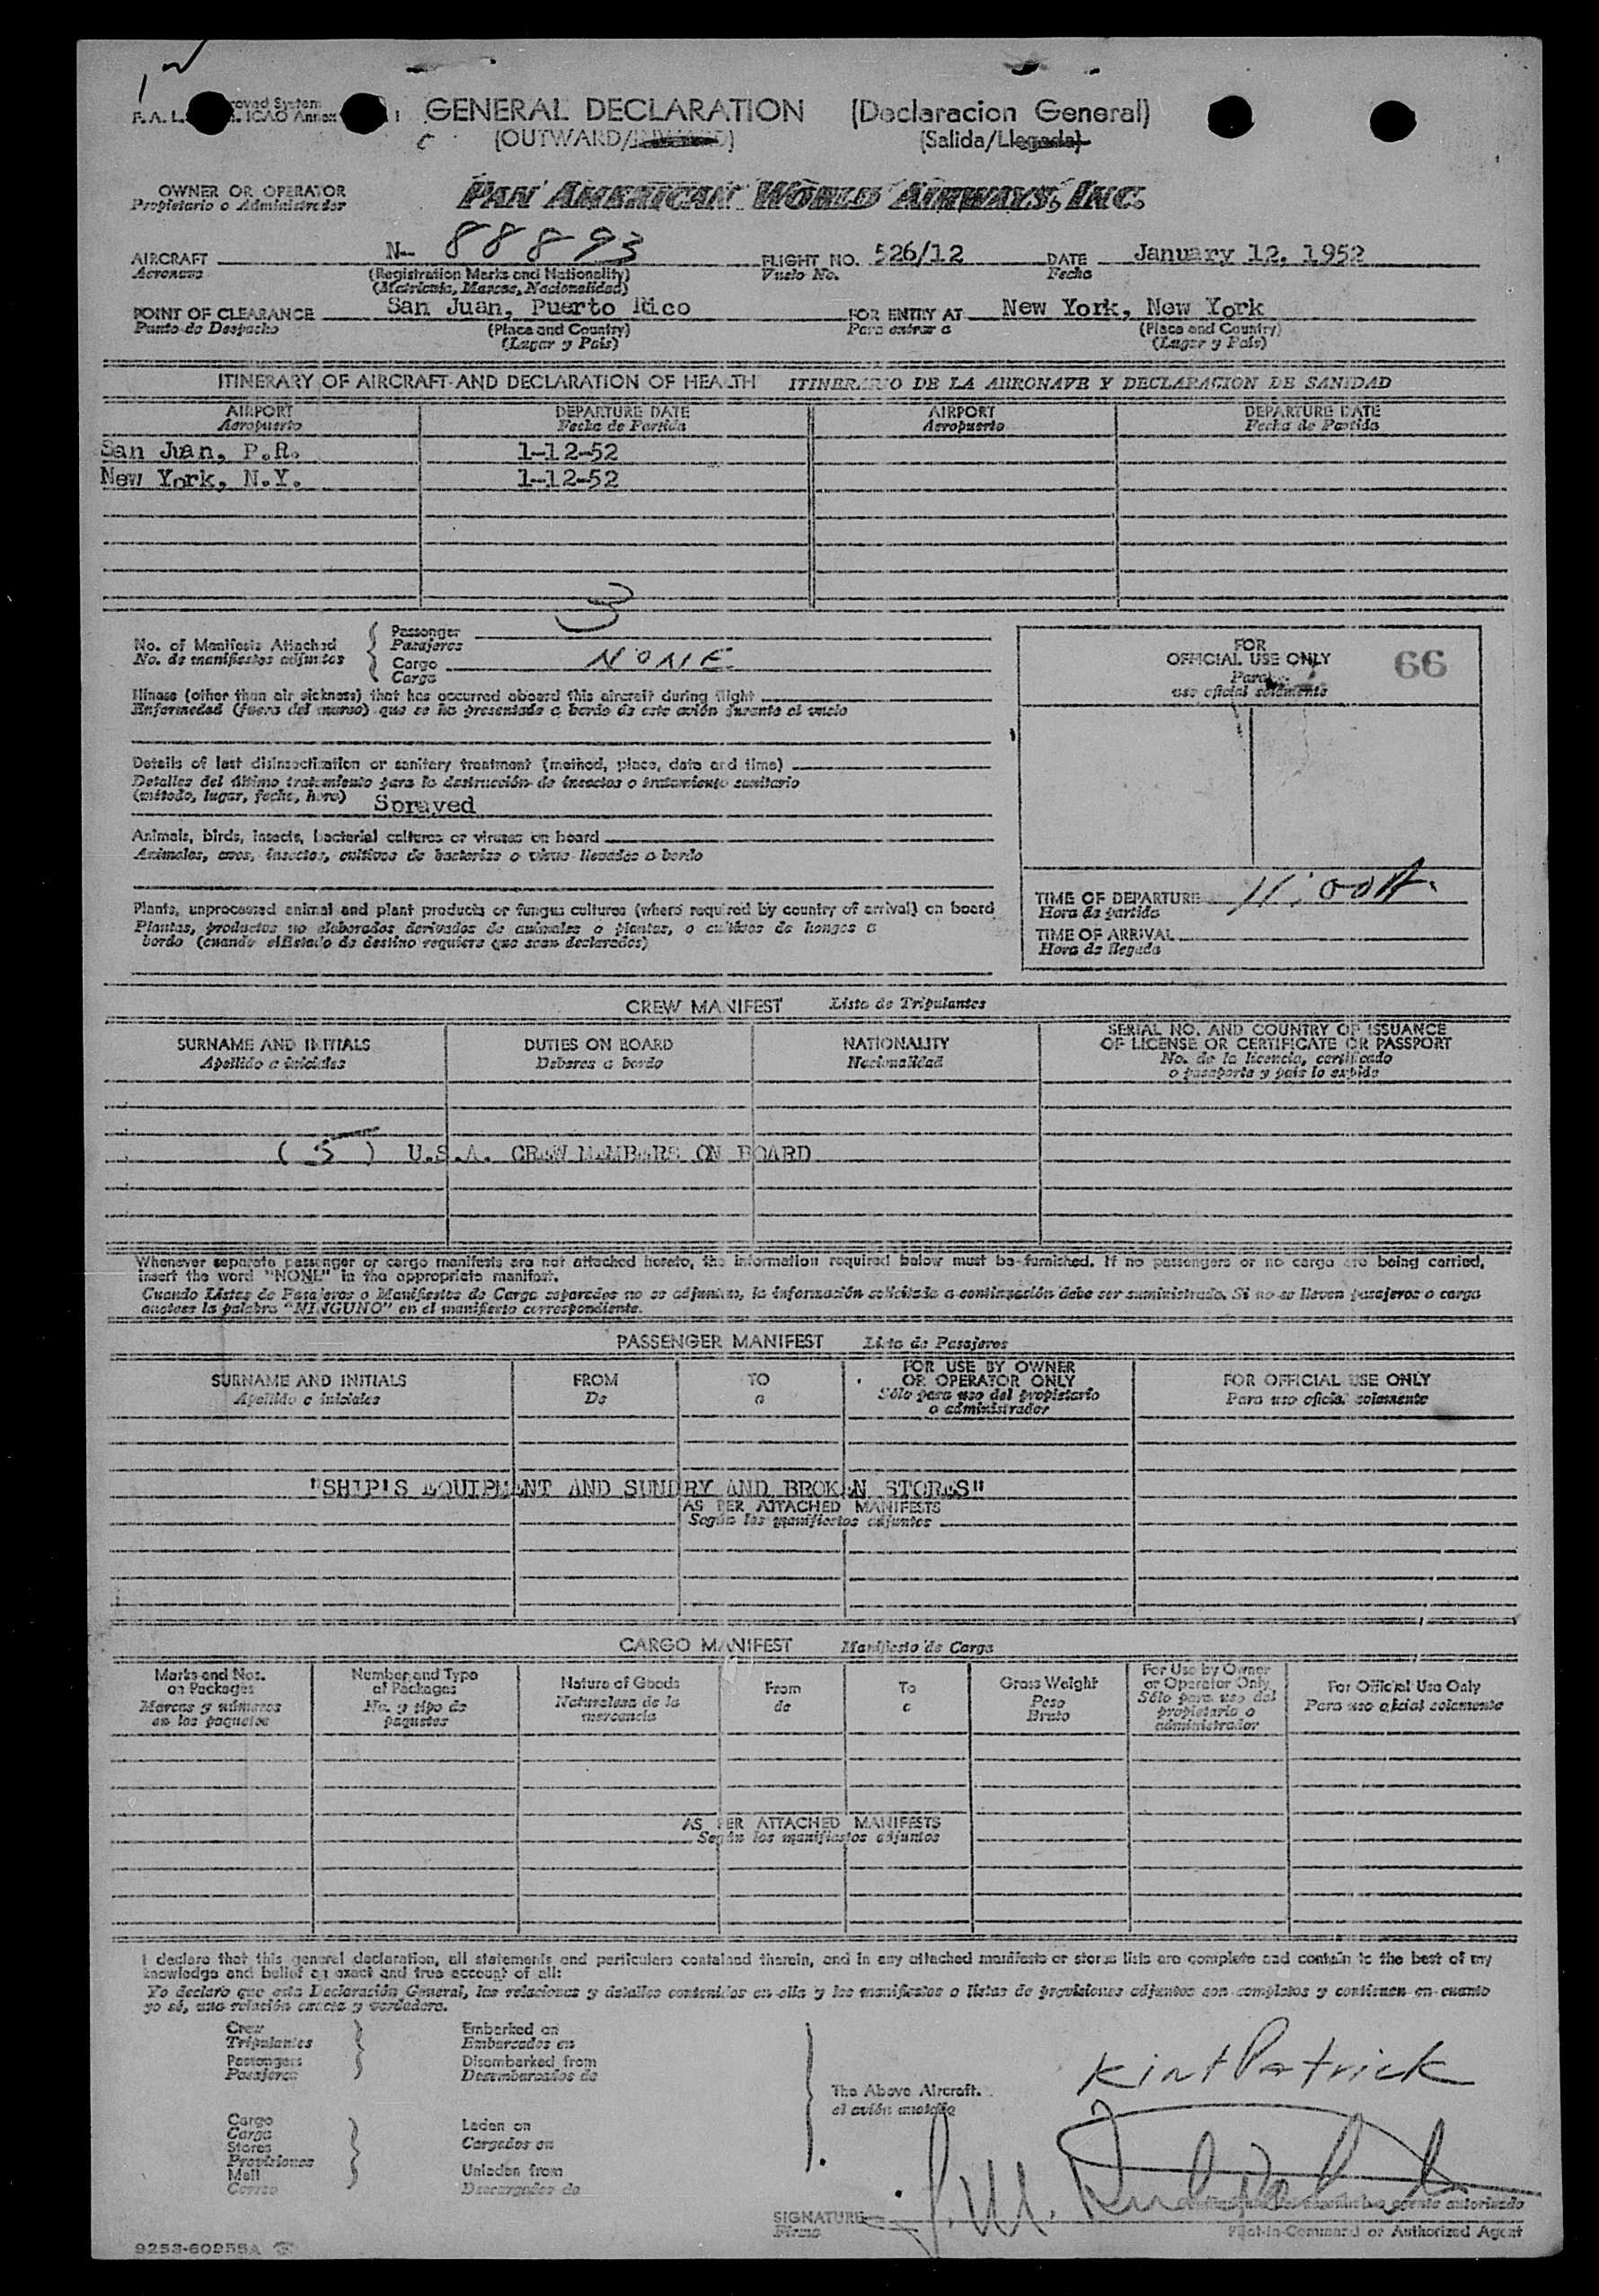 GENERAL DECLARATION (Declaracion General)
(OUTWARD/ (Salida/Llegada)
OWNER OR OPERATOR
Propietario o Administrador
PAN AMERICAN WORLD AIRWAYS, INC.
AIRCRAFT N- 88893 FLIGHT NO. 526/12 DATE January 12, 1952
Aeronave (Registration Marks and Nationality) Vuelo No. Fecha
(Matricula, Marcas, Nacionalidad)
POINT OF CLEARANCE San Juan, Puerto Rico FOR ENTRY AT New York, New York
Punto de Despacho (Place and Country) Para entrar a (Place and Country)
(Lugar y Pais) (Lugar y Pais)
ITINERARY OF AIRCRAFT AND DECLARATION OF HEALTH ITINERARIO DE LA AERONAVE Y DECLARACION DE SANIDAD
AIRPORT DEPARTURE DATE AIRPORT DEPARTURE DATE
Aeropuerto Fecha de Partida Aeropuerto Fecha de Partida
San Juan, P.R. 1-12-52
New York, N.Y. 1-12-52
No. of Manifests Attached Passenger 3
No. de manifiestos adjuntos Pasajeros
Cargo NONE
Carga
FOR
OFFICIAL USE ONLY 66
Para
uso oficial solamente
Illness (other than air sickness) that has occurred aboard this aircraft during flight
Enfermedad (fuera del mareo) que se ha presentado a bordo de este avión durante el vuelo
Details of last disinsectization or sanitary treatment (method, place, date and time)
Detalles del último tratamiento para la destrucción de insectos o tratamiento sanitario
(método, lugar, fecha, hora) Sprayed
Animals, birds, insects, bacterial cultures or viruses on board
Animales, aves, insectos, cultivos de bacterias o virus llevados a bordo
Plants, unprocessed animal and plant products or fungus cultures (where required by country of arrival) on board
Plantas, productos no elaborados derivados de animales o plantas, o cultivos de hongos a
bordo (cuando el Estado de destino requiera que sean declarados)
TIME OF DEPARTURE 11:00A.
Hora de partida
TIME OF ARRIVAL
Hora de llegada
CREW MANIFEST Lista de Tripulantes
SURNAME AND INITIALS DUTIES ON BOARD NATIONALITY SERIAL NO. AND COUNTRY OF ISSUANCE
OF LICENSE OR CERTIFICATE OR PASSPORT
Apellido e iniciales Deberes a bordo Nacionalidad No. de la licencia, certificado
o pasaporte y pais lo expide
( 5 ) U.S.A. CREW MEMBERS ON BOARD
Whenever separate passenger or cargo manifests are not attached hereto, the information required below must be furnished. If no passengers or no cargo are being carried,
insert the word "NONE" in the appropriate manifest.
Cuando Listas de Pasajeros o Manifiestos de Carga separados no se adjuntan, la información solicitada a continuación debe ser suministrada. Si no se llevan pasajeros o carga
anotese la palabra "NINGUNO" en el manifiesto correspondiente.
PASSENGER MANIFEST Lista de Pasajeros
SURNAME AND INITIALS FROM TO FOR USE BY OWNER
OR OPERATOR ONLY FOR OFFICIAL USE ONLY
Apellido e iniciales De a Sólo para uso del propietario
o administrador Para uso oficial solamente
"SHIP'S EQUIPMENT AND SUNDRY AND BROKEN STORES"
AS PER ATTACHED MANIFESTS
Según los manifiestos adjuntos
CARGO MANIFEST Manifiesto de Carga
Marks and Nos.
on Packages
Marcas y números
en los paquetes
Number and Type
of Packages
No. y tipo de
paquetes
Nature of Goods
Naturaleza de la
mercancia
From
de
To
a
Gross Weight
Peso
Bruto
For Use by Owner
or Operator Only
Sólo para uso del
propietario o
administrador
For Official Use Only
Para uso oficial solamente
AS PER ATTACHED MANIFESTS
Según los manifiestos adjuntos
I declare that this general declaration, all statements and particulars contained therein, and in any attached manifests or stores lists are complete and contain to the best of my
knowledge and belief an exact and true account of all:
Yo declaro que esta Declaración General, las relaciones y detalles contenidos en ella y los manifiestos o listas de provisiones adjuntos son completos y contienen en cuanto
yo sé, una relación exacta y verdadera.
Crew Embarked on
Tripulantes Embarcados en
Passengers Disembarked from
Pasajeros Desembarcados de
The Above Aircraft.
el avión anotado
KirtPatrick
Cargo Laden on
Carga Cargados en
Stores
Provisiones
Mail Unladen from
Correo Descargados de
SIGNATURE
Firma
agente autorizado
Pilot-in-Command or Authorized Agent
9253-60955A